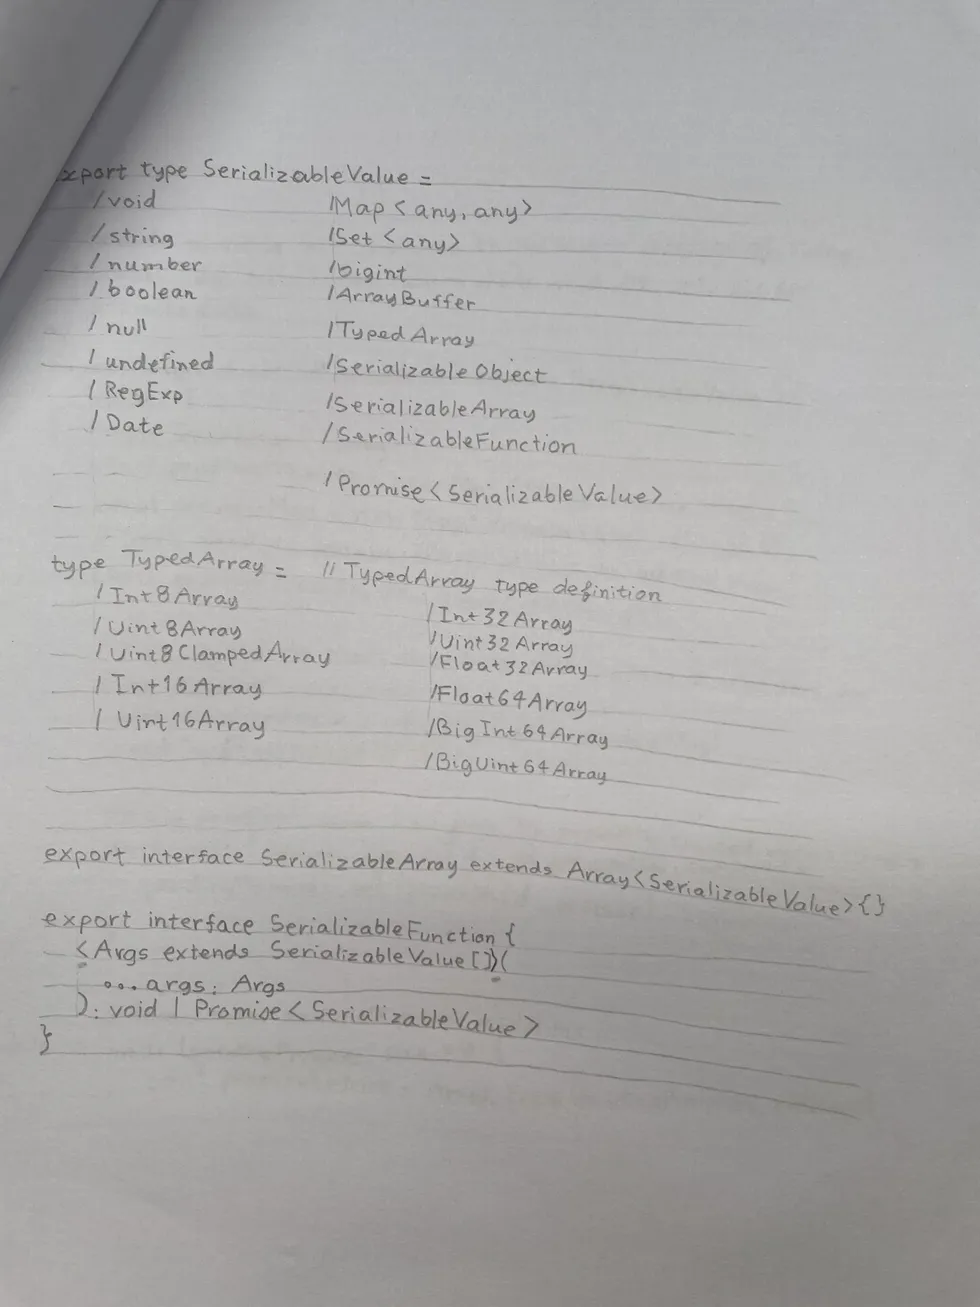 xport type SerializableValue =
/void
/string
/number
/boolean
/null
/undefined
/RegExp
/Date
/Map<any, any>
/Set<any>
/bigint
/ArrayBuffer
/TypedArray
/SerializableObject
/SerializableArray
/SerializableFunction
/Promise<SerializableValue>
type TypedArray = // TypedArray type definition
/Int8Array
/Uint8Array
/Uint8ClampedArray
/Int16Array
/Uint16Array
/Int32Array
/Uint32Array
/Float32Array
/Float64Array
/BigInt64Array
/BigUint64Array
export interface SerializableArray extends Array<SerializableValue>{}
export interface SerializableFunction {
<Args extends SerializableValue[]>(
...args: Args
): void | Promise<SerializableValue>
}